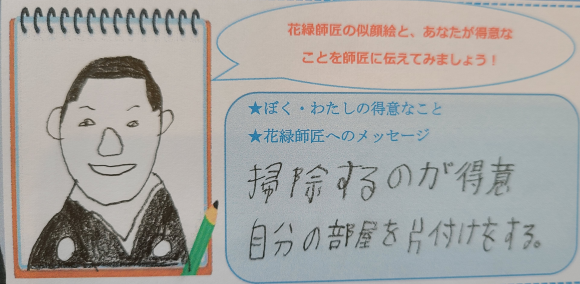 花緑師匠の似顔絵と、あなたが得意な
ことを師匠に伝えてみましょう！
★ぼく・わたしの得意なこと
★花緑師匠へのメッセージ
掃除するのが得意
自分の部屋を片付けをする。